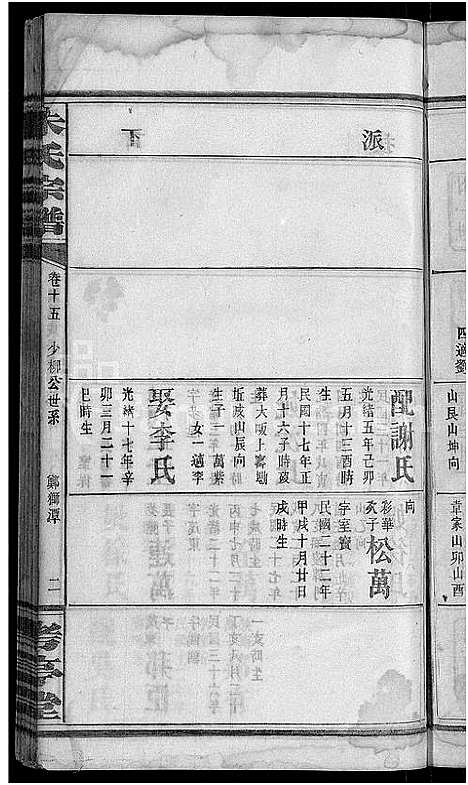 四適劉
山艮山坤向
章家山卯山酉
派
下
配謝氏
光緒五年己卯
五月十三酉時
生
民國十七年正
月十六子時歿
葬大坂上
坵戌山辰向
生子一萬紫
女一適李
娶李氏
光緒十七年辛
卯三月二十一
巳時生
向
彩華
次子松萬
字室寶
民國二十二年
甲戌十月廿日
戌時生
朱氏宗譜
卷十五
少柳公世系
獅潭
二
考亭堂